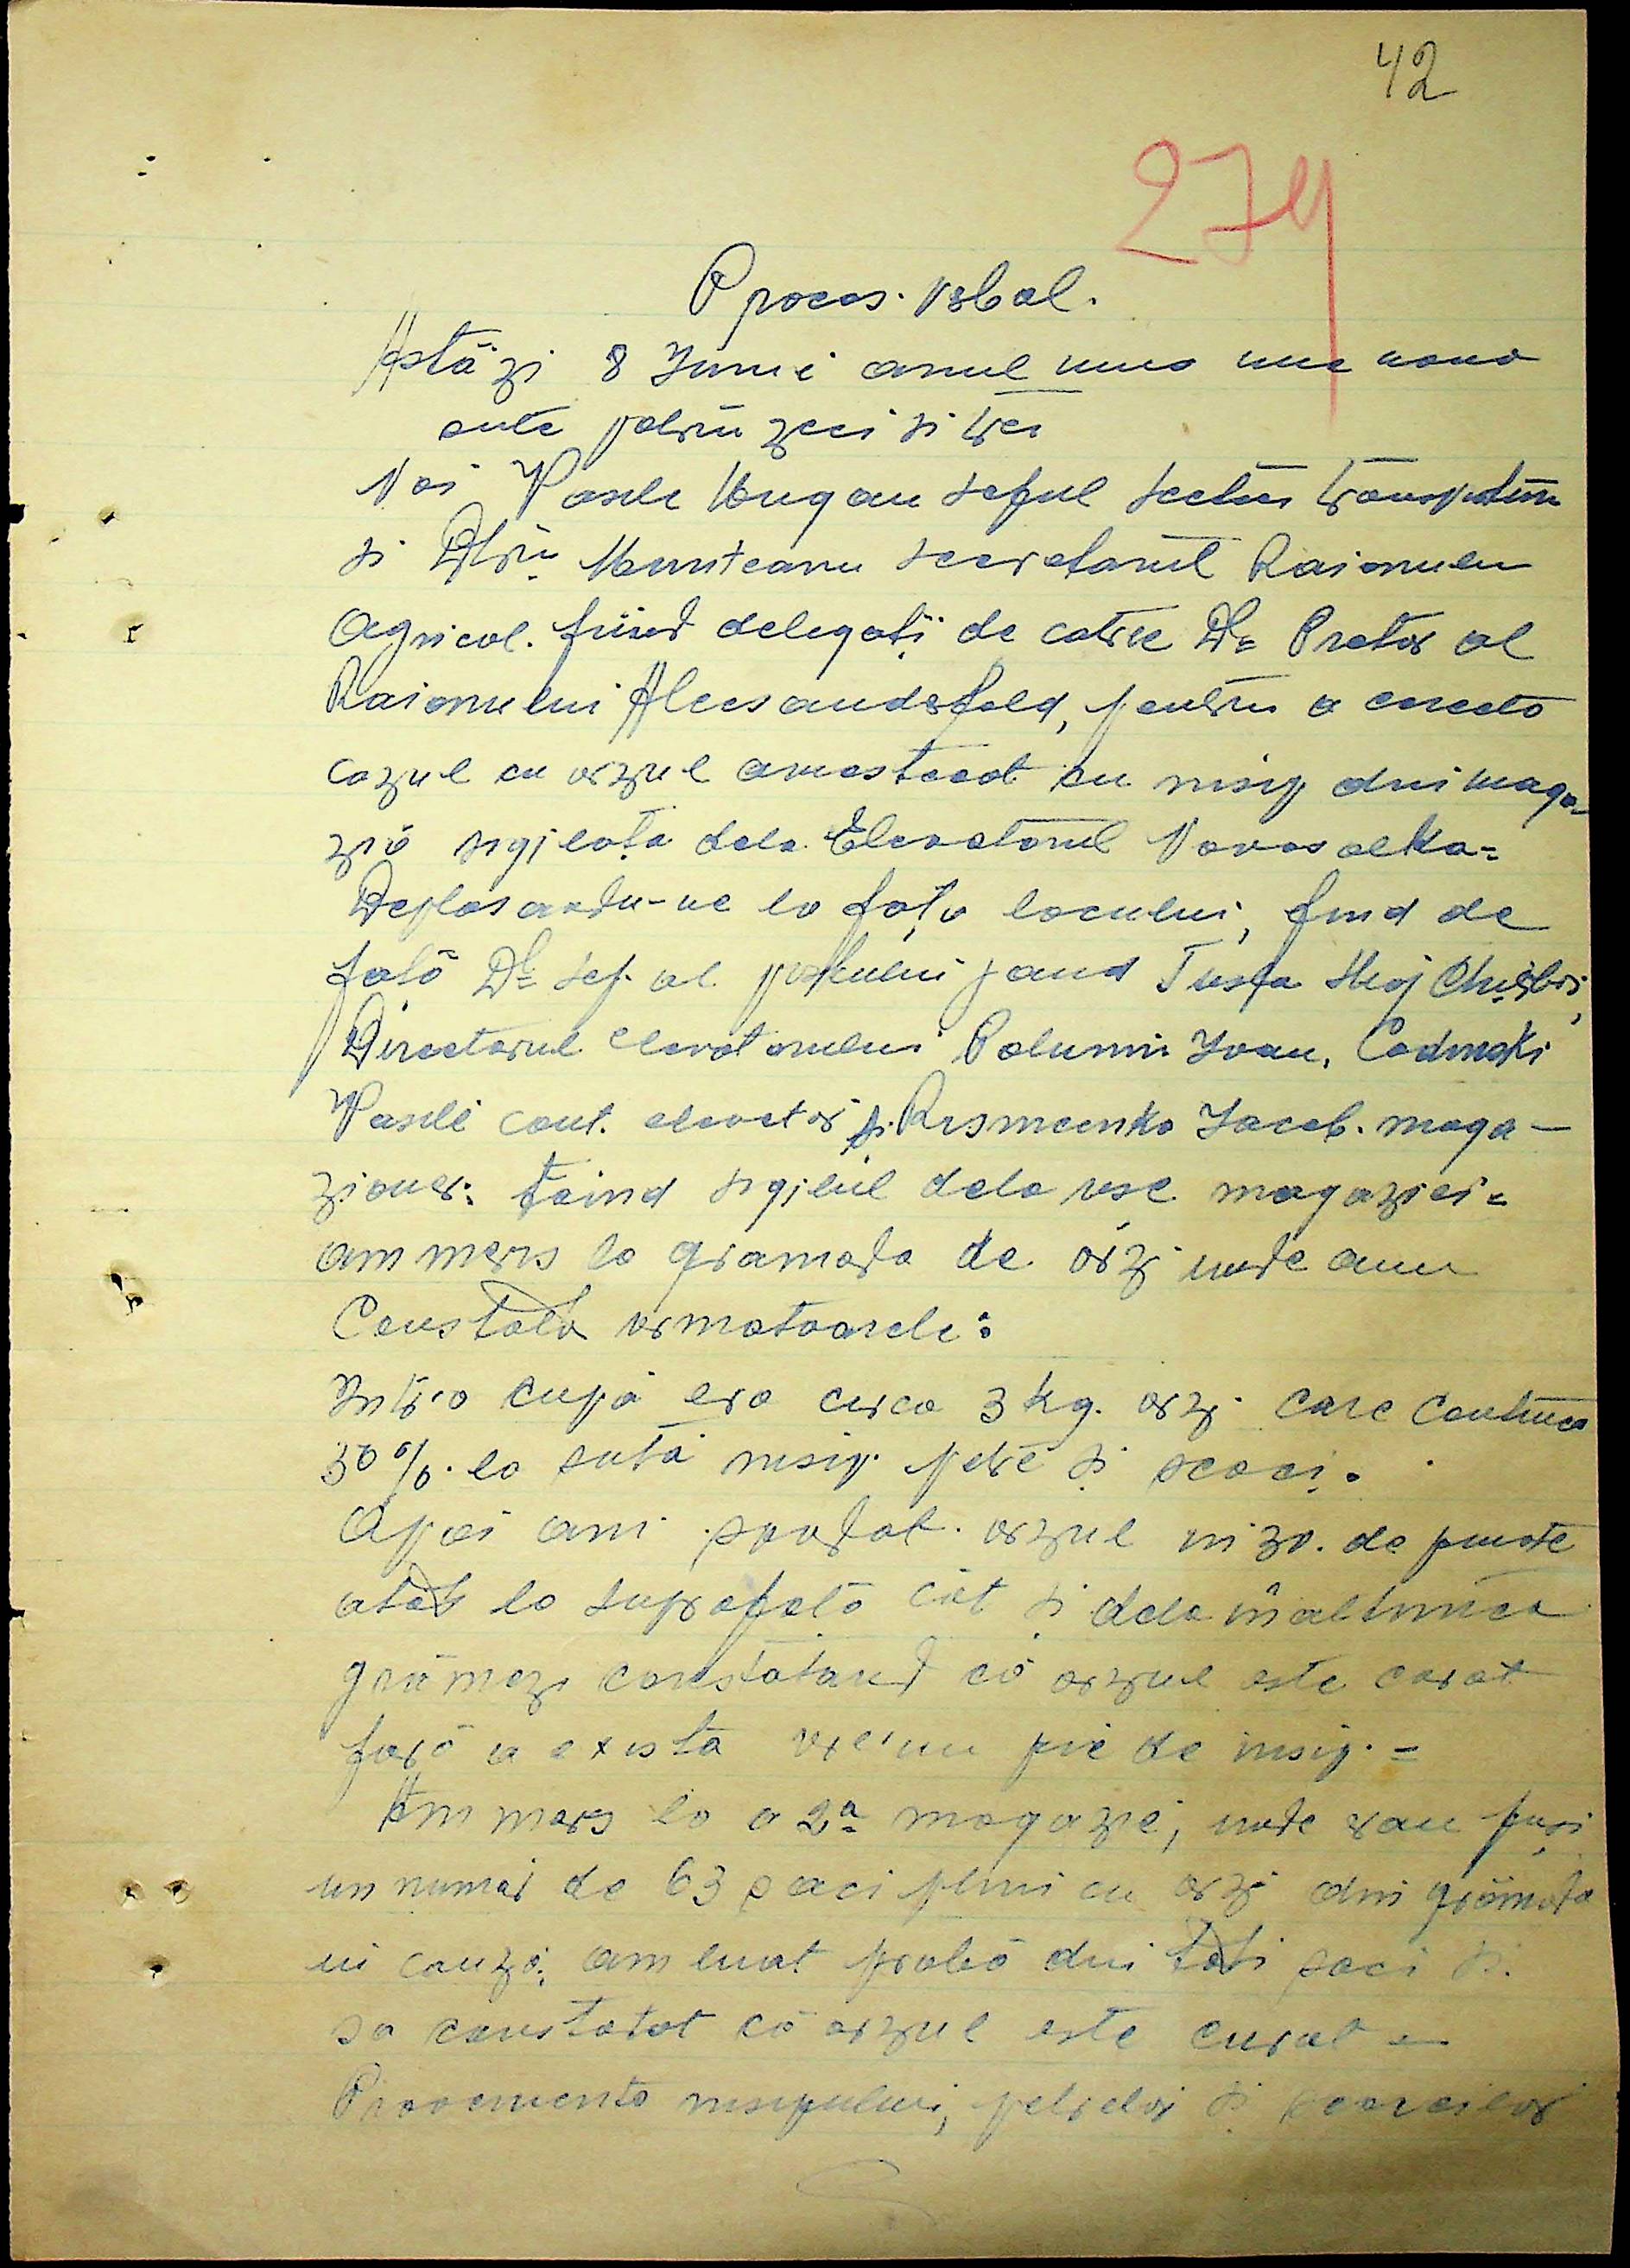 42
274
Proces. Verbal.
Astăzi 8 Iunie anul una mie nouo
sute patru zeci și trei
Noi Vasile Ungan șeful secției
și Dtru Munteanu secretarul Raionului
Agricol. fiind delegați de catre Dl. Pretor al
Raionului Alecsandrfeld, pentru a cerceta
cazul cu orzul amestecat cu nisip din maga-
zia sigilata dela Elevatorul
Deplasandu-ne la fața locului, fiind de
fată Dl. Șef. al postului jand
Directorul elevatorului Ivan,
Vasile cont. elevator și Iacob. maga-
zioner. taind sigiliul dela use magaziei=
am mers la gramada de orz unde am
Constatat urmatoarele:
Intr'o cupă era circa 3 kg. orz. care continea
30%. la sută nisip. petre și scoci.
Apoi am orzul in 30. de puncte
atât la suprafată cât și dela inaltimea
grămezi constatand că orzul este curat
fară a exista vre'un pic de nisip.=
Am mers la a 2a magazie, unde erau puși
un numar de 63 saci plini cu orz din grămada
in cauză, am luat probă din toti saci și
sa constatat că orzul este curat
Provenienta nisipului, petrelor și